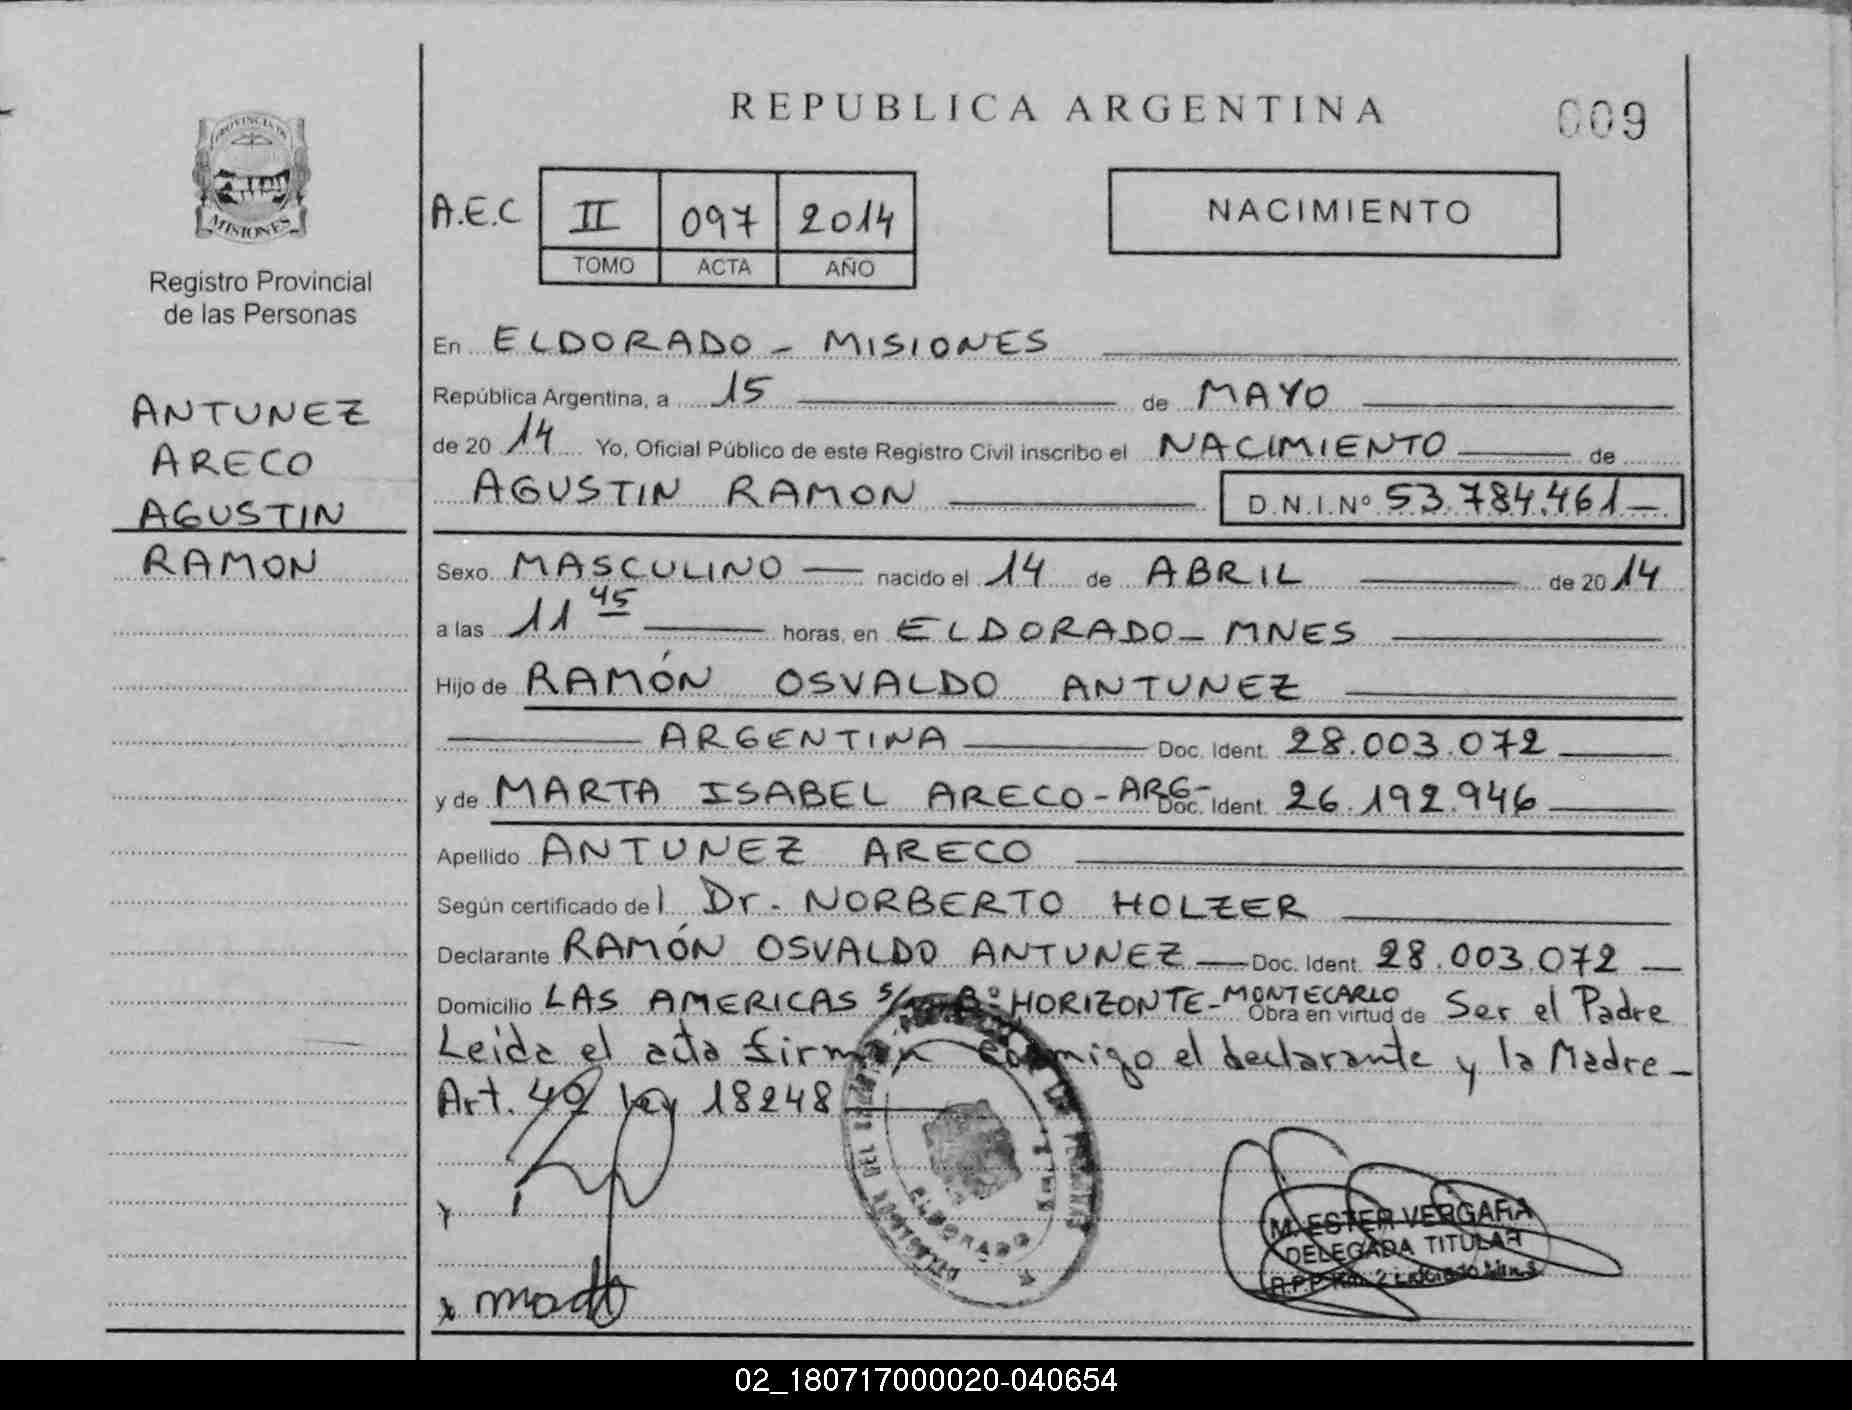 REPUBLICA ARGENTINA
009
PROVINCIA DE
MISIONES
Registro Provincial
de las Personas
ANTUNEZ
ARECO
AGUSTIN
RAMON
A.E.C II 097 2014
TOMO ACTA AÑO
NACIMIENTO
En ELDORADO - MISIONES
República Argentina, a 15 de MAYO
de 20 14 Yo, Oficial Público de este Registro Civil inscribo el NACIMIENTO de
AGUSTIN RAMON D.N.I.Nº 53.784.461
Sexo MASCULINO nacido el 14 de ABRIL de 20 14
a las 11 45 horas, en ELDORADO - MNES
Hijo de RAMÓN OSVALDO ANTUNEZ
ARGENTINA Doc. Ident. 28.003.072
y de MARTA ISABEL ARECO - ARG- Doc. Ident. 26.192.946
Apellido ANTUNEZ ARECO
Según certificado de l Dr. NORBERTO HOLZER
Declarante RAMÓN OSVALDO ANTUNEZ Doc. Ident. 28.003.072
Domicilio LAS AMERICAS S/ Bº HORIZONTE - MONTECARLO Obra en virtud de Ser el Padre
Leida el acta firman conmigo el declarante y la Madre
Art. 40 ley 18248
ELDORADO
M. ESTER VERGARA
DELEGADA TITULAR
02_180717000020-040654